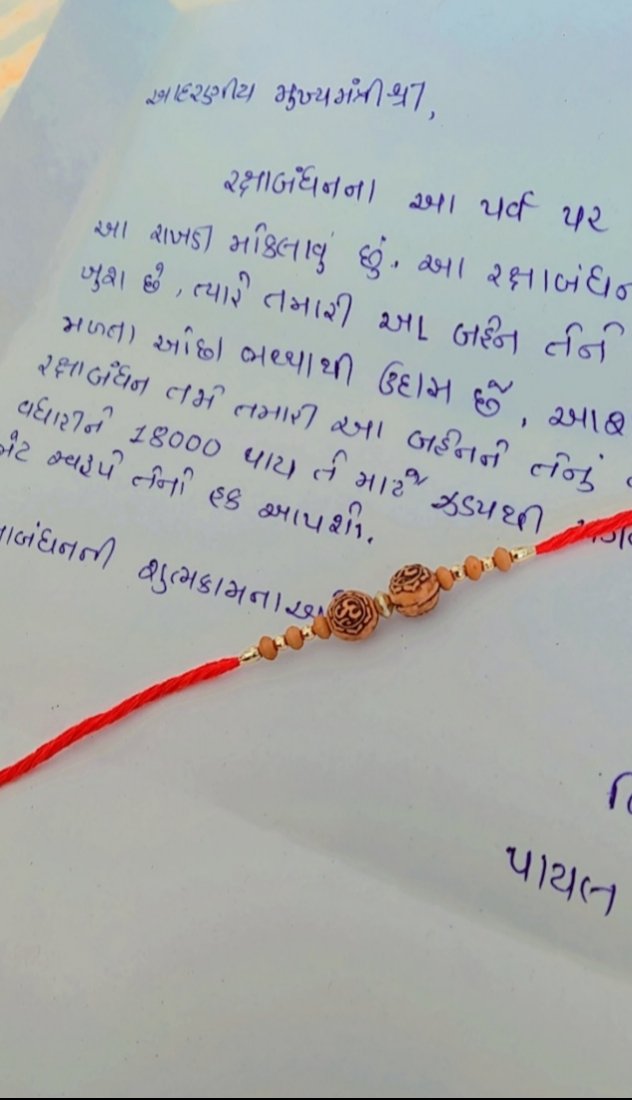 આદરણીય મુખ્યમંત્રીશ્રી,
રક્ષાબંધનના આ પર્વ પર
આ રાખડી મોકલાવું છું. આ રક્ષાબંધન
ખુશ છે, ત્યારે તમારી આ બહેન તેને
મળતા ઓછા ભથ્થાથી ઉદાસ છે, આશ
રક્ષાબંધન તમે તમારી આ બહેનને તેનું
વધારીને 18000 થાય તે માટે ઝડપથી
ભેટ સ્વરૂપે તેનો હક આપશો.
શુભકામનાઓ
પાયલ